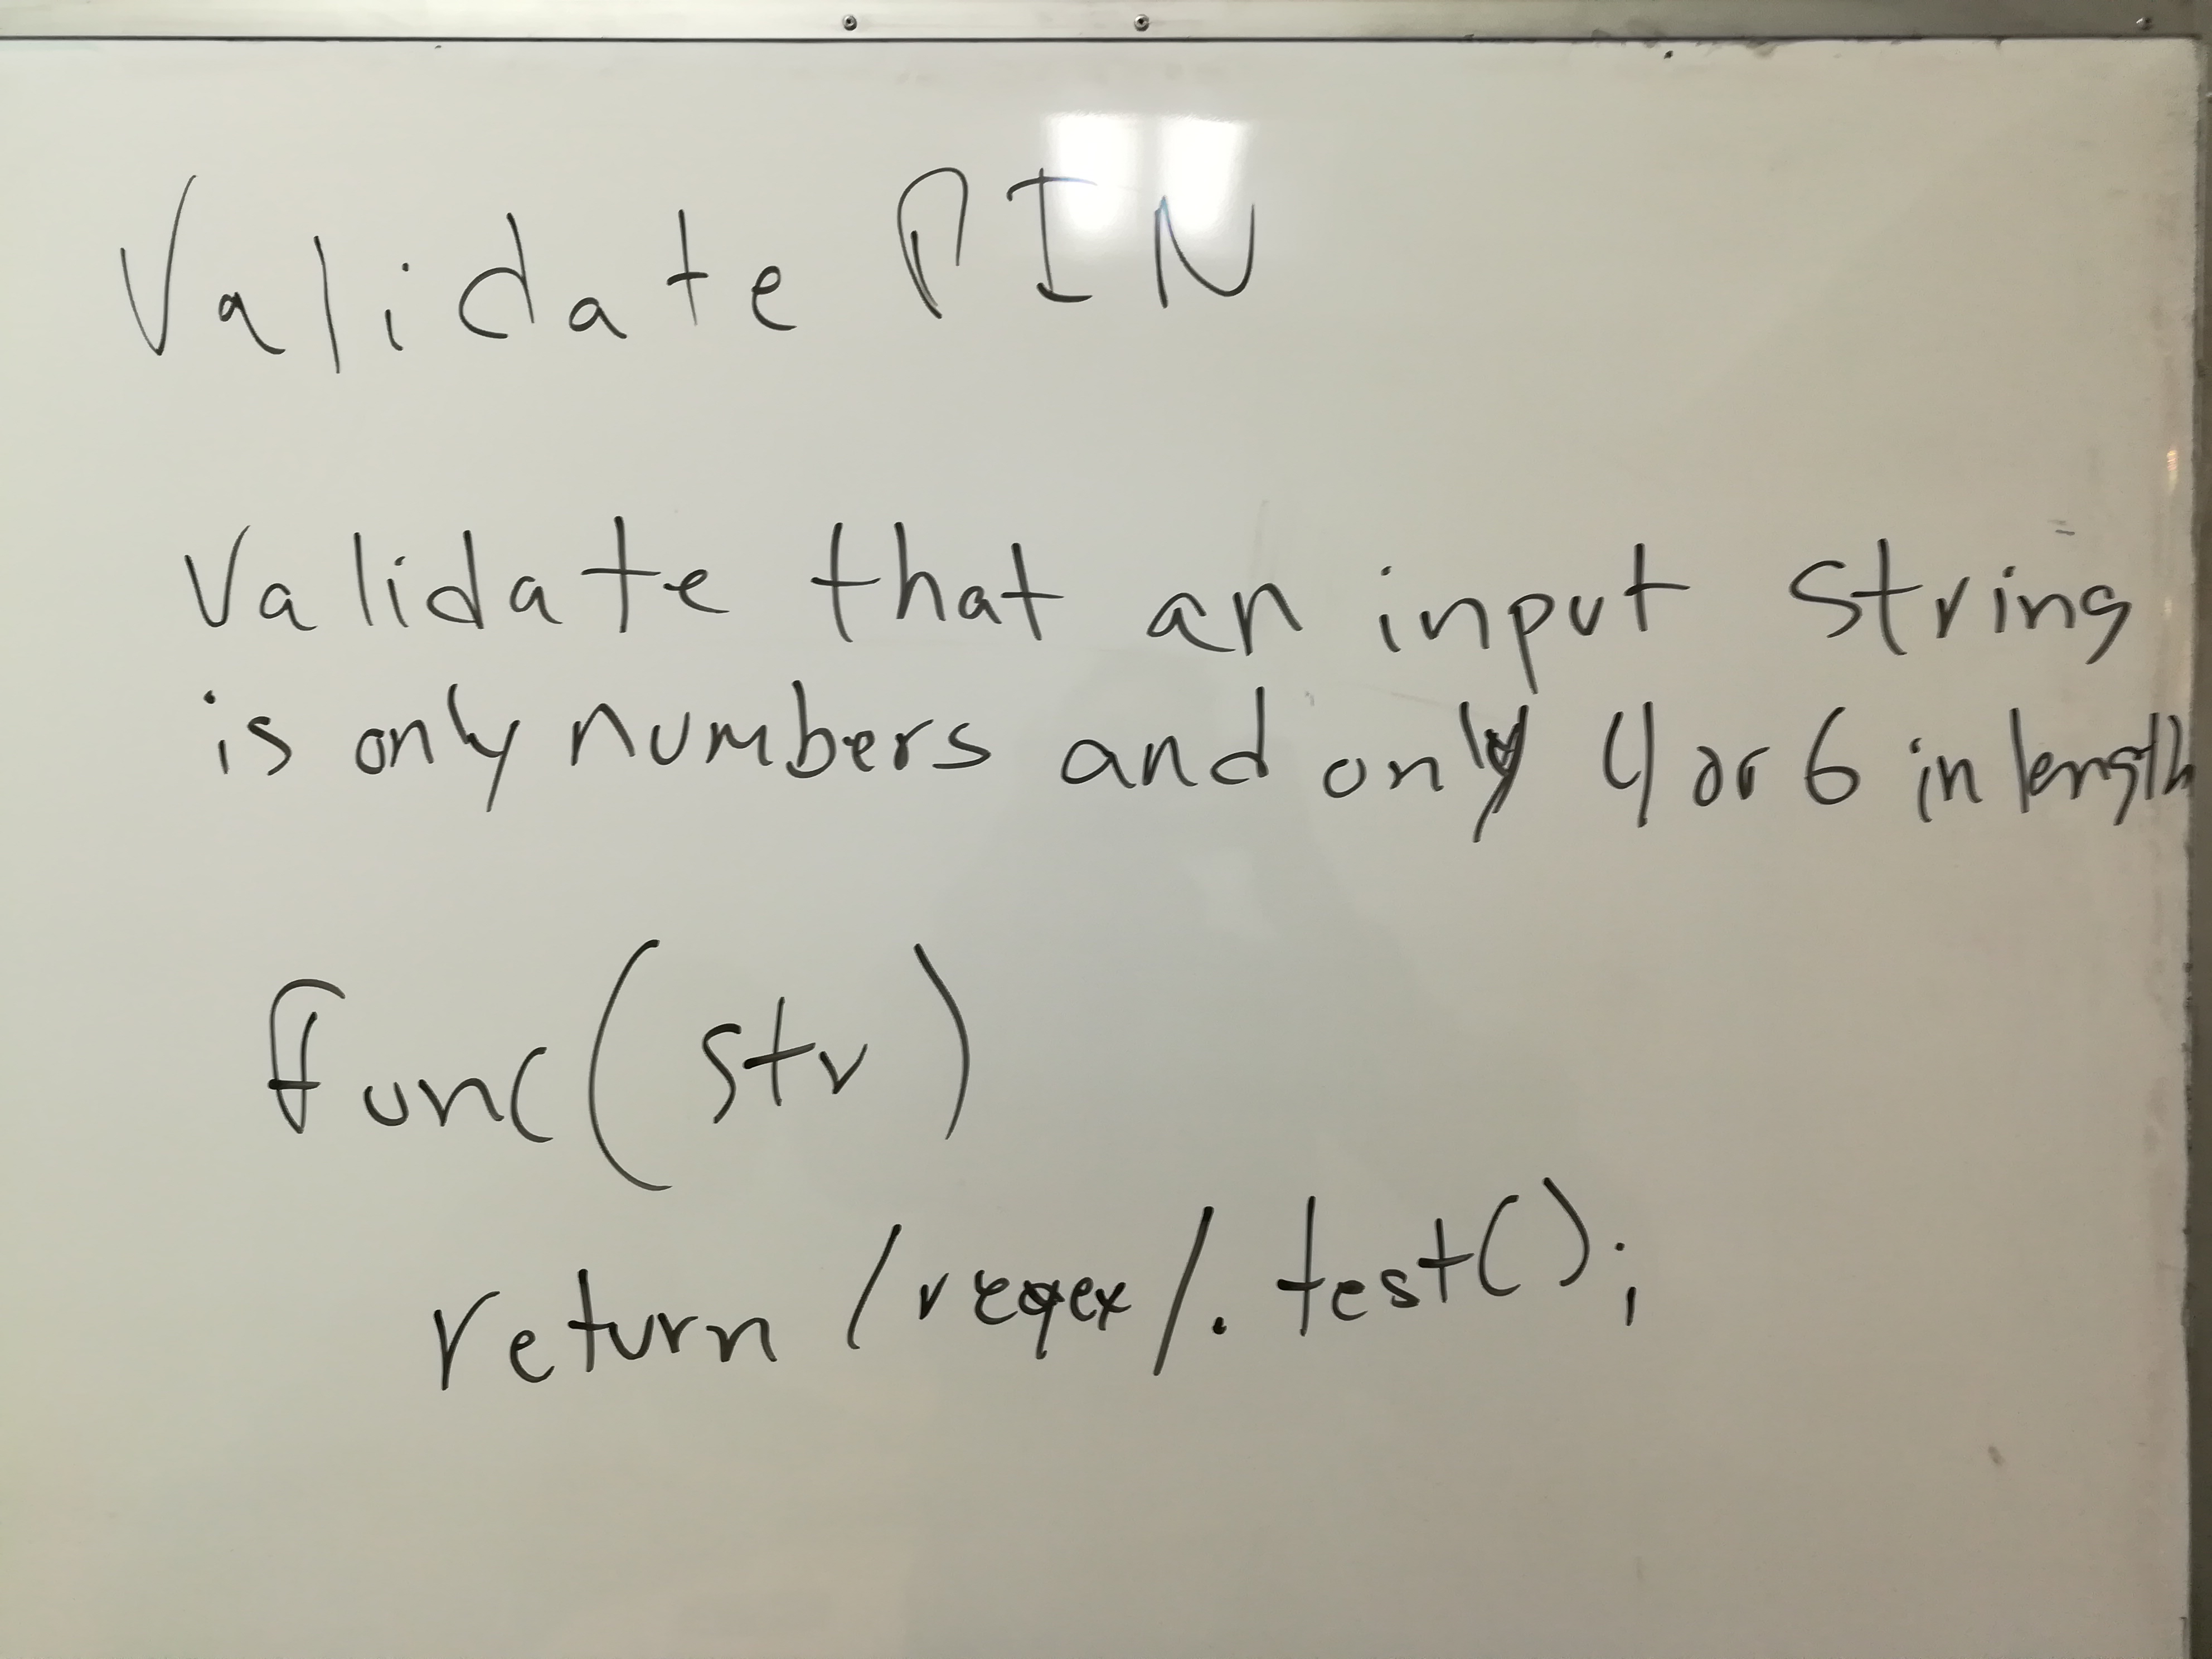 Validate PIN
Validate that an input string
is only numbers and only 4 or 6 in length
func(str)
return /regex/.test();